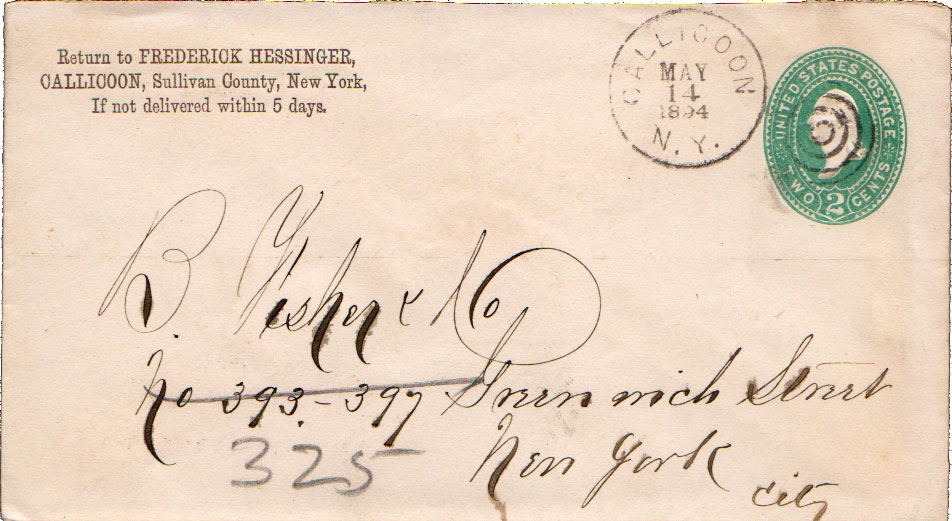 Return to FREDERICK HESSINGER,
CALLICOON, Sullivan County, New York,
If not delivered within 5 days.
CALLICOON
MAY
14
1894
N. Y.
UNITED STATES POSTAGE
TWO 2 CENTS
B. Fisher & Co
No 393-397 Greenwich Street
325
New York
City